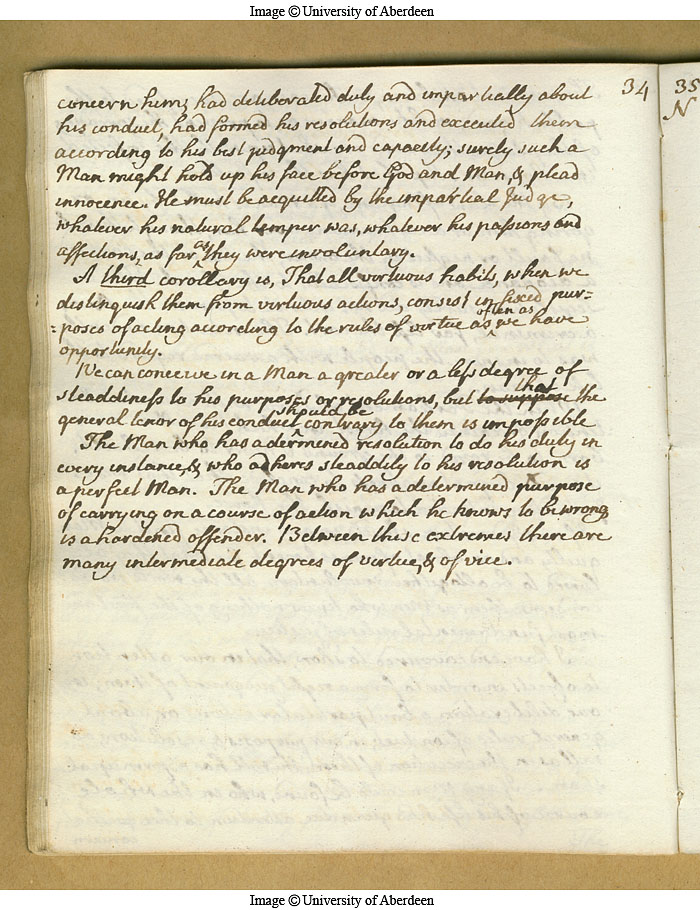 Image © University of Aberdeen
34
35
N
concern him; had deliberated duly and impartially about
his conduct, had formed his resolutions and executed them
according to his best judgment and capacity; surely such a
Man might hold up his face before God and Man, & plead
innocence. He must be acquitted by the impartial Judge,
whatever his natural temper was, whatever his passions and
affections, as far as they were involuntary.
A third corollary is, That all virtuous habits, when we
distinguish them from virtuous actions, consist in fixed pur=
=poses of acting according to the rules of virtue as often as we have
opportunity.
We can conceive in a Man a greater or a less degree of
steaddiness to his purposes or resolutions, but to suppose that the
general tenor of his conduct should be contrary to them is impossible
The Man who has a dermined resolution to do his duty in
every instance, & who adheres steaddily to his resolution is
a perfect Man. The Man who has a determined purpose
of carrying on a course of action which he knows to be wrong
is a hardened offender. Between these extremes there are
many intermediate degrees of virtue, & of vice.
Image © University of Aberdeen